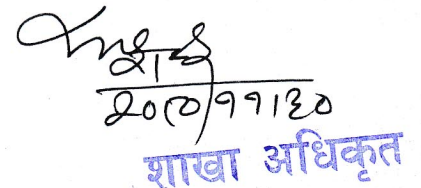 २०८०।११।३०
शाखा अधिकृत